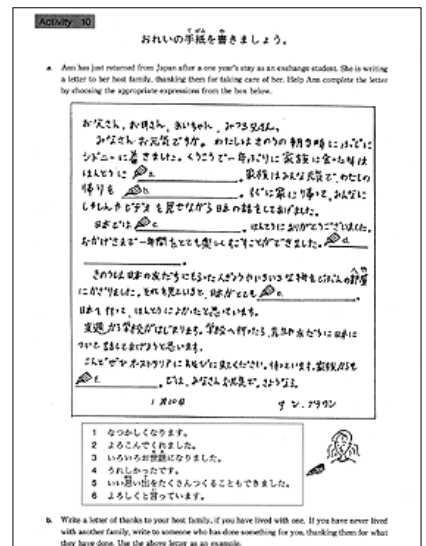 Activity 10
おれいの手紙を書きましょう。
a. Ann has just returned from Japan after a one year's stay as an exchange student. She is writing
a letter to her host family, thanking them for taking care of her. Help Ann complete the letter
by choosing the appropriate expressions from the box below.
お父さん、お母さん、あいちゃん、みつるさん、
みなさんお元気ですか。わたしはきのうの朝9時にぶじに
シドニーに着きました。くうこうで一年ぶりに家族に会った時は
ほんとうに a. 。家族はみんな元気で、わたしの
帰りを b. 。すぐに家に帰って、みんなに
しゃしんやビデオを見せながら日本の話をしてあげました。
日本では c. 。ほんとうにありがとうございました。
おかげさまで一年間をとても楽しくすごすことができました。 d.
。
きのうは日本の友だちにもらったにんぎょうやいろいろな物をじぶんの部屋
にかざりました。それを見ていると、日本がとても e.
日本に行って、ほんとうによかったと思っています。
来週から学校がはじまります。学校へ行ったら、先生や友だちに日本に
ついて話してあげようと思います。
こんどぜひオーストラリアにあそびに来てください。待っています。家族からも
f. 。では、みなさんお元気で。さようなら。
1月10日 アン・ブラウン
1 なつかしくなります。
2 よろこんでくれました。
3 いろいろお世話になりました。
4 うれしかったです。
5 いい思い出をたくさんつくることもできました。
6 よろしくと言っています。
b. Write a letter of thanks to your host family, if you have lived with one. If you have never lived
with another family, write to someone who has done something for you, thanking them for what
they have done. Use the above letter as an example.